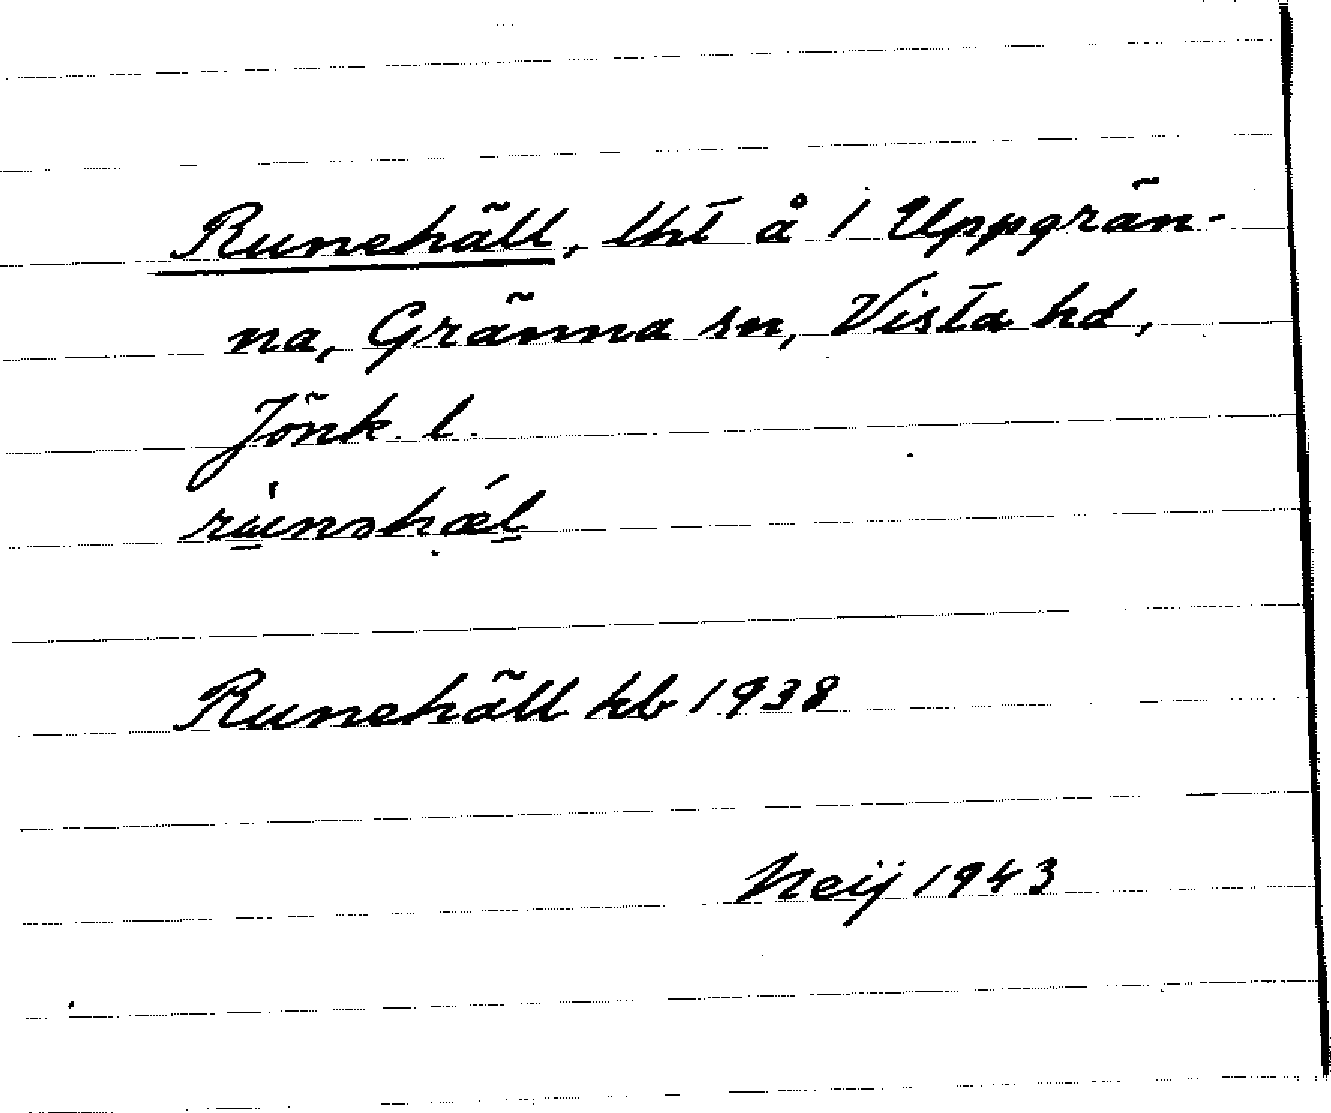 Runehäll, lht å 1 Uppgrän-
na, Gränna sn, Vista hd,
Jönk. l.
Runehäll kb 1938
Neij 1943